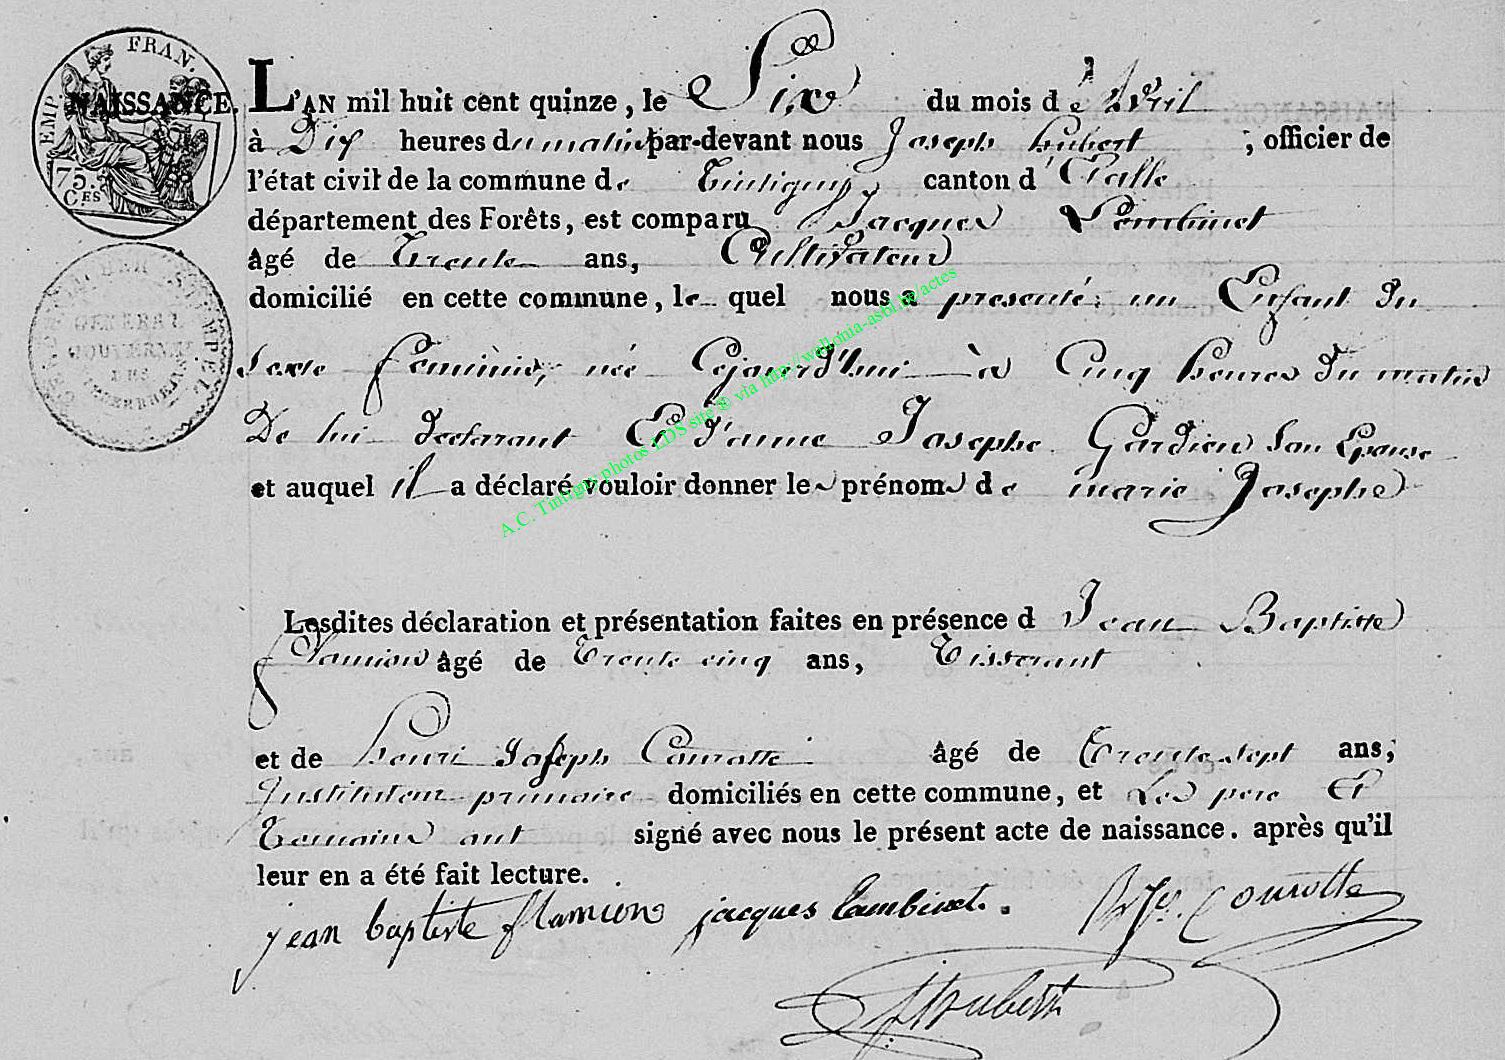 EMP. FRAN.
75.
CES
NAISSANCE. L'AN mil huit cent quinze, le Six du mois d'Avril
à Dix heures du matin par-devant nous Joseph hubert ; officier de
l'état civil de la commune de Tintigny, canton d'Etalle
département des Forêts, est comparu Jacques Lembinet
âgé de Trente ans, Cultivateur
domicilié en cette commune, le quel nous a presenté un Enfant Du
Sexe feminin, née Cejourd'hui à Cinq heures Du matin
De lui declarant Et d'anne Josephe Gardien Son Epouse
et auquel il a déclaré vouloir donner les prénoms de marie Josephe
Lesdites déclaration et présentation faites en présence d Jean Baptiste
flamion âgé de Trente cinq ans, Tisserant
et de henri Joseph Courotte âgé de Trente sept ans,
Instituteur primaire domiciliés en cette commune, et Les pere Et
Temoins ont signé avec nous le présent acte de naissance. après qu'il
leur en a été fait lecture.
jean baptiste flamion jacques Lambinet. Courotte
Hubert
A.C. Tintigny photos LDS site ® via http://wallonia-asbl.be/actes